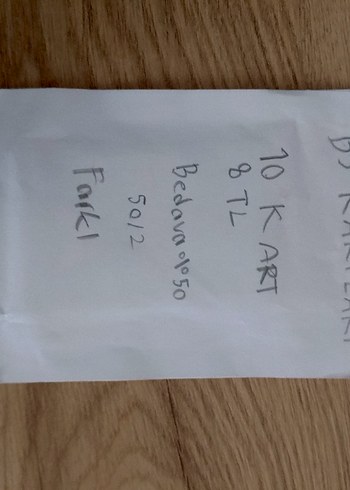 10 KART
8 TL
Bedava %50
50/2
Farklı